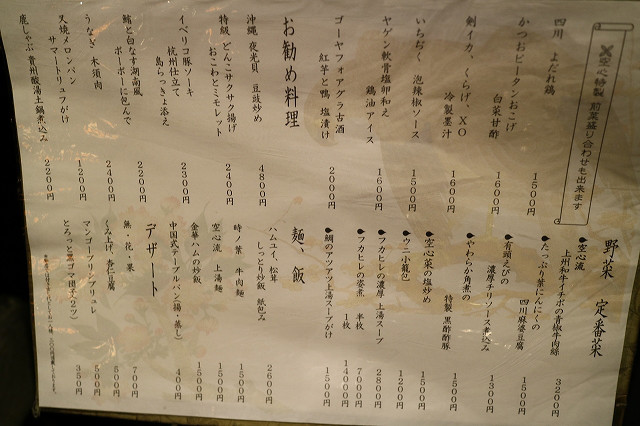 空心特製 前菜盛り合わせも出来ます
四川 よだれ鶏 1500円
かつおピータンおこげ
白菜甘酢 1600円
剣イカ、くらげ、XO
冷製墨汁 1600円
いちおく 泡辣椒ソース 1500円
ヤゲン軟骨塩卵和え
鶏油アイス 1600円
ゴーヤフォアグラ古酒
紅芋と鴨 塩漬け 2000円
お勧め料理
沖縄 夜光貝 豆豉炒め 4800円
特級 どんこサクサク揚げ
おこわとミモレット 2400円
イベリコ豚ソーキ
杭州仕立て
島らっきょ添え 2300円
鮪と白なす湖南風
ポーポーに包んで 2200円
うなぎ 木須肉 2400円
叉焼メロンパン
サマートリュフがけ 1200円
鹿しゃぶ 貴州酸湯土鍋煮込み 2200円
野菜 定番菜
空心流
上州和牛イチボの青椒牛肉絲 3200円
たっぷり葉にんにくの
四川麻婆豆腐 1500円
有頭えびの
濃厚チリソース煮込み 1300円
やわらか角煮の
特製 黒酢酢豚 1500円
空心菜の塩炒め 1500円
ウニ小籠包 1200円
フカヒレの濃厚上湯スープ 2800円
フカヒレの姿煮 半枚 7000円
1枚 14000円
鯛のアツアツ上湯スープがけ 1500円
麺、飯
ハムユイ、松茸
しっとり炒飯 紙包み 2600円
時ノ葉 牛肉麺 1500円
空心流 上湯麺 1500円
金華ハムの炒飯 1500円
中国式テーブルパン(揚・蒸し) 400円
デザート
無・花・果 700円
くみ上げ、杏仁豆腐 500円
マンゴープリンブリュレ 500円
とろっと黒ゴマ団子(2ツ) 350円